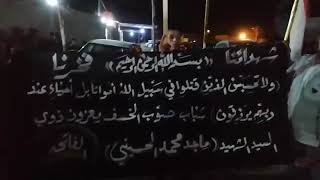 شهدائنا «بسم الله الرحمن الرحيم» فخرنا
(ولا تحسبن الذين قتلوا في سبيل الله امواتا بل احياء عند
ربهم يرزقون) شباب صوب الخسف يعزون ذوي
السيد الشهيد (ماجد محمد الحسيني) الفاتحة